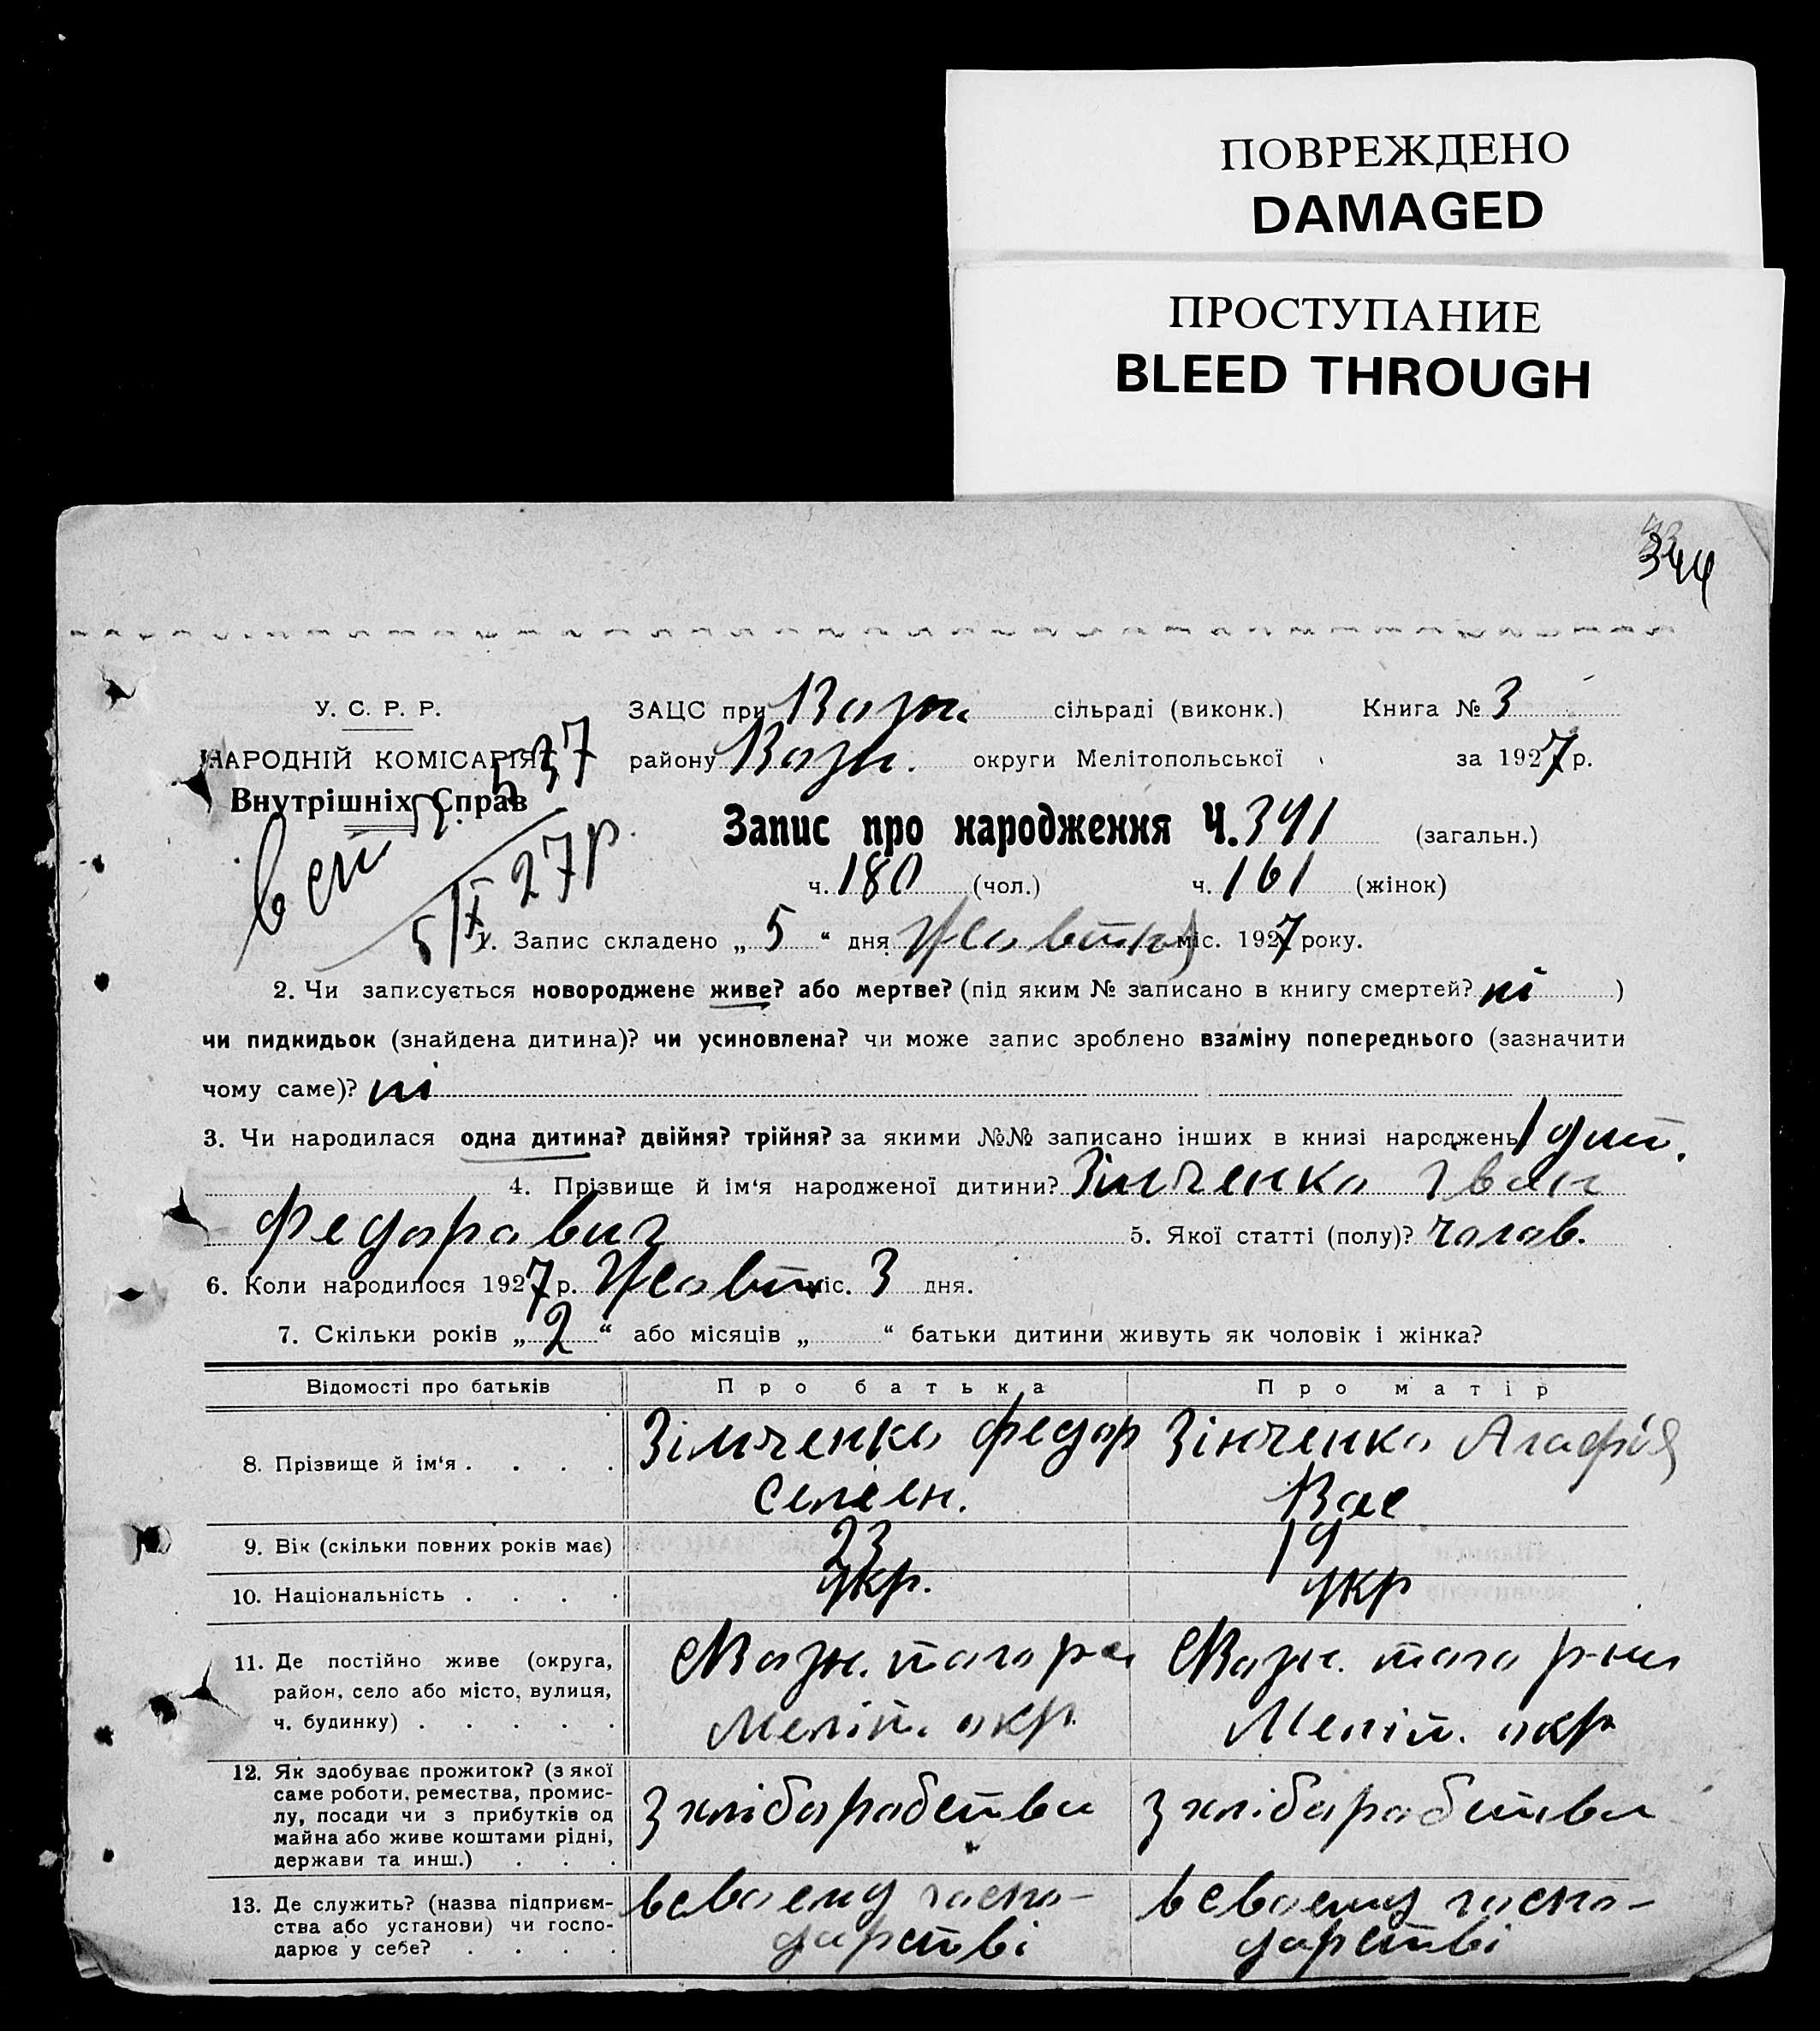 ПОВРЕЖДЕНО
DAMAGED
ПРОСТУПАНИЕ
BLEED THROUGH
344
У. С. Р. Р.
НАРОДНІЙ КОМІСАРІЯТ
Внутрішніх Справ
5/X 27р.
ЗАЦС при Возн. сільраді (виконк.) Книга № 3
району Возн. округи Мелітопольської за 1927 р.
Запис про народження Ч. 341 (загальн.)
ч. 180 (чол.) ч. 161 (жінок)
1. Запис складено „ 5 “ дня Жовтня міс. 1927 року.
2. Чи записується новороджене живе? або мертве? (під яким № записано в книгу смертей? ні )
чи пидкидьок (знайдена дитина)? чи усиновлена? чи може запис зроблено взаміну попереднього (зазначити
чому саме)? ні
3. Чи народилася одна дитина? двійня? трійня? за якими №№ записано інших в книзі народжень 1 дит.
4. Прізвище й ім'я народженої дитини? Зінченко Іван
Федорович 5. Якої статті (полу)? чолов.
6. Коли народилося 1927 р. Жовтн міс. 3 дня.
7. Скільки років „ 2 “ або місяців „ “ батьки дитини живуть як чоловік і жінка?
Відомості про батьків Про батька Про матір
8. Прізвище й ім'я . . . . Зінченко Федор Зінченко Агафія
Семен. Вас
9. Вік (скільки повних років має) 23 19
10. Національність . . . . укр. укр
11. Де постійно живе (округа, район, село або місто, вулиця, ч. будинку) . . . . .
сВозн. того р-на сВозн. того р-на
Меліт. окр. Меліт. окр
12. Як здобуває прожиток? (з якої
саме роботи, ремества, промис-
лу, посади чи з прибутків од
майна або живе коштами рідні,
держави та инш.) . . .
З хліборобства З хліборобства
13. Де служить? (назва підприєм-
ства або установи) чи госпо-
дарює у себе? . . . .
в своему госпо- в своему госпо-
дарстві дарстві